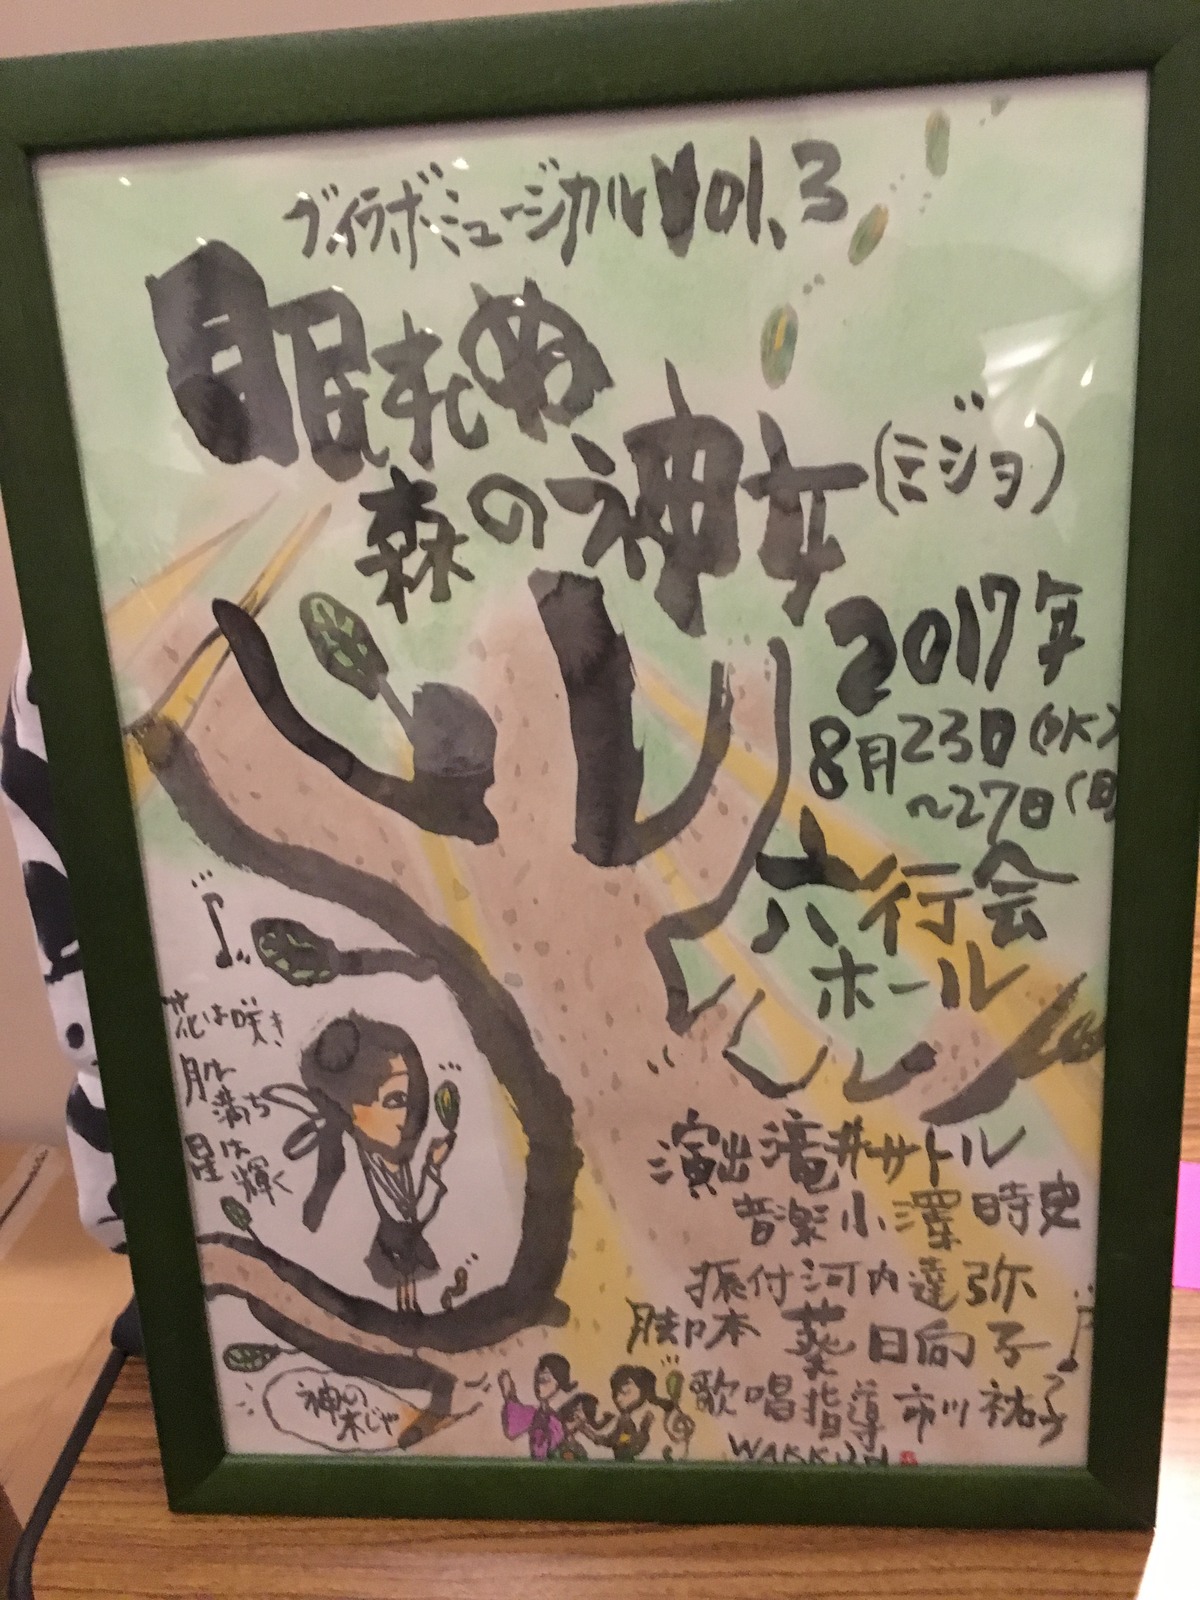 ブイラボミュージカルVol.3
眠れぬ
森の神女(ミジョ)
2017年
8月23日(水)
～27日(日
六行会
ホール
花は咲き
月は
満ち
星は
輝く
演出 滝井サトル
音楽 小澤時史
振付 河内達弥
脚本 葵日向子
歌唱指導 市川祐子
神の
木じゃ
WAKKUN